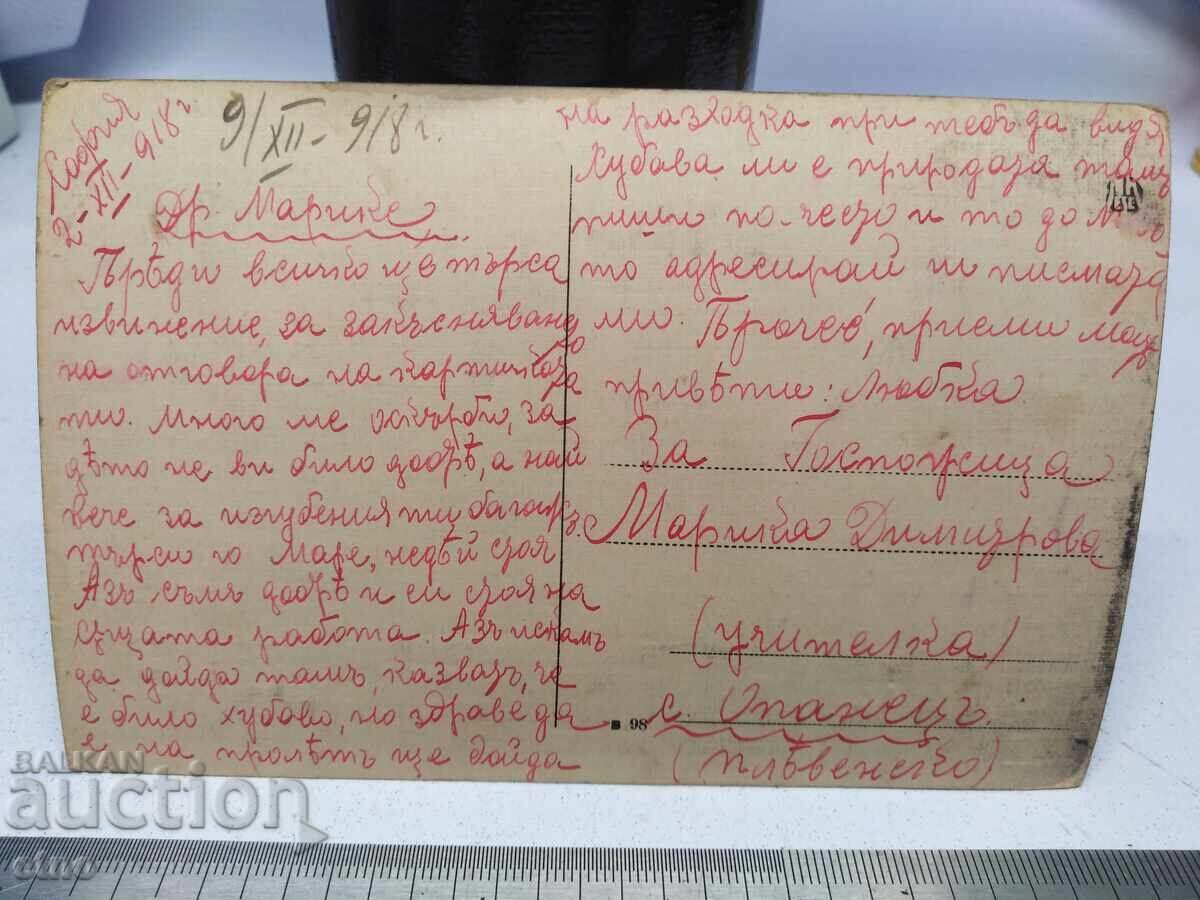 София
2-XII-918 г.
9/XII-918 г.
Др. Марике
Прѣди всичко ще търся
извинение, за закъсняване
на отговора на картичката
ти. Много ме оскърби, за
дѣто не ви било добрѣ, а най
вече за изгубения ти багаж
търси го Маре, недѣй стоя
Азъ съмъ добрѣ и си стоя на
сѫщата работа. Азъ искамъ
да дойда тамъ, казватъ, че
е било хубаво, но здраве да
е на пролѣтъ ще дойда
на разходка при тебъ да видя
Хубава ли е природата тамъ
пиши по-често и то до
то адресирай и писмата
ми. Прочее, приеми мои
привѣти: Любка
За Госпожица
Марийка Димитрова
(учителка)
с. Опанецъ
(плѣвенско)
в 98
BALKAN
auction